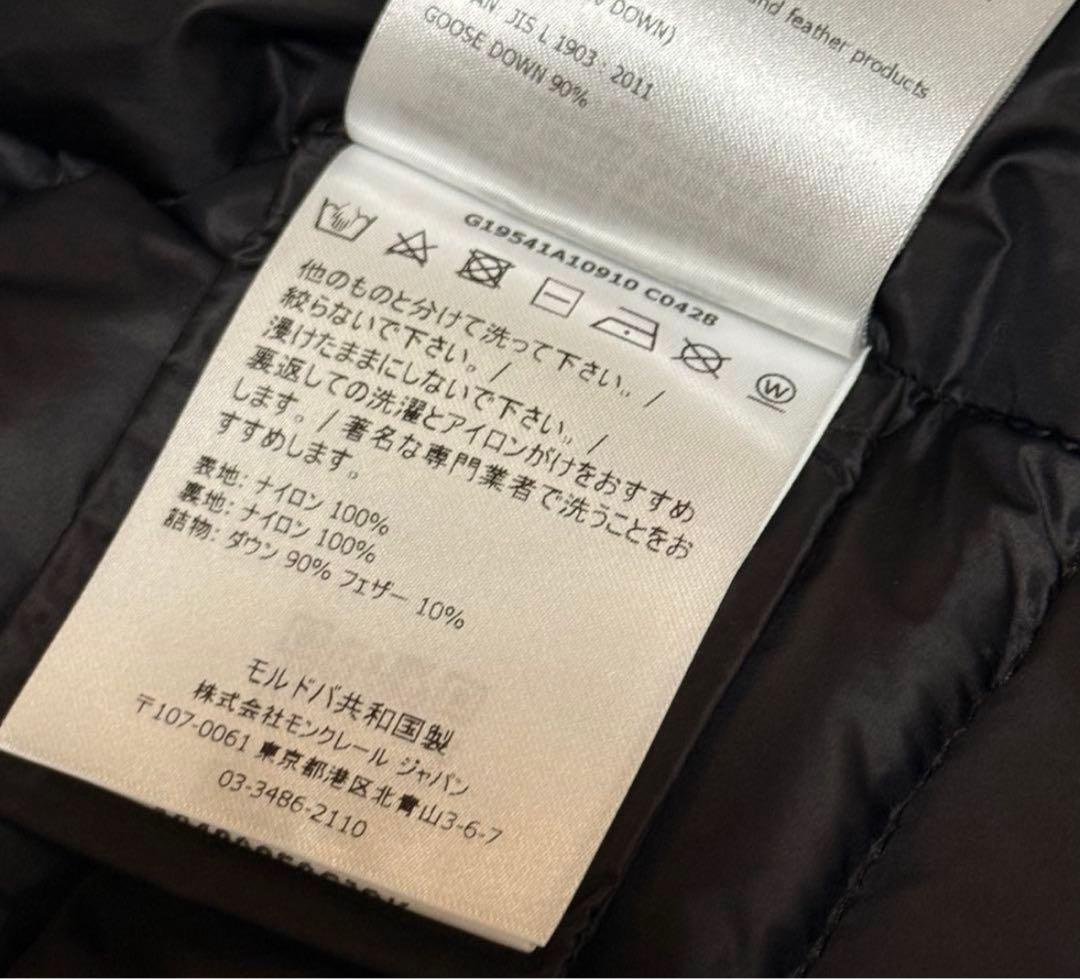 DOWN)
and feather products
JIS L 1903 : 2011
GOOSE DOWN 90%
G19541A10910 C0428
W
他のものと分けて洗って下さい。/
絞らないで下さい。/
浸けたままにしないで下さい。/
裏返しての洗濯とアイロンがけをおすすめ
します。/ 著名な専門業者で洗うことをお
すすめします。
表地: ナイロン 100%
裏地: ナイロン 100%
詰物: ダウン 90% フェザー 10%
モルドバ共和国製
株式会社モンクレール ジャパン
〒107-0061 東京都港区北青山3-6-7
03-3486-2110